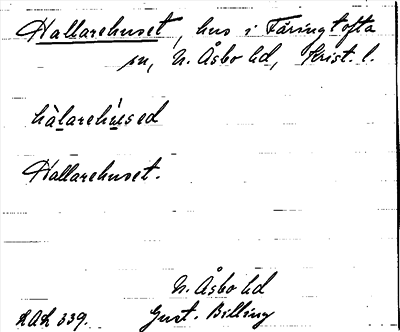 Hallarehuset, hus i Färingtofta
sn, N. Åsbo hd, Krist. l.
hàlarehúsed
Hallarehuset.
N. Åsbo hd
Gust. Billing